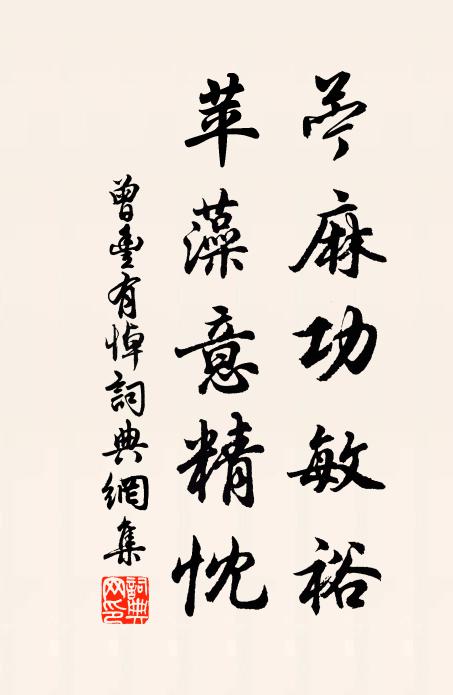 苧麻功敏裕
苹藻意精忱
曾豐有悼詞典網集
詞典
网印